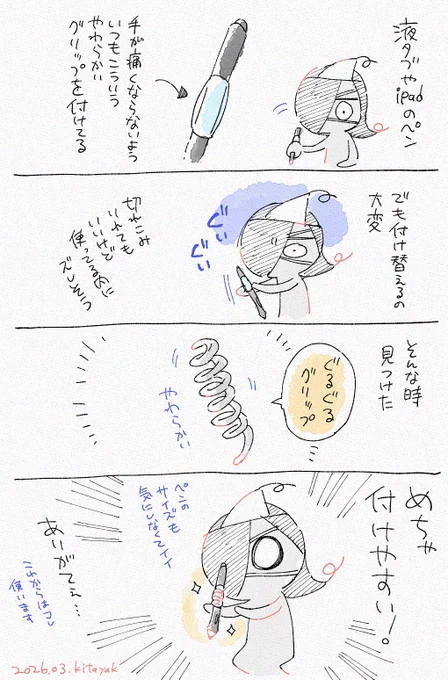 液タブや
iPadの
ペン
手が痛くならないよう
いつもこういう
やわらかい
グリップを付けてる
でも付け替えるの
大変
ぐい
ぐい
切れこみ
いれても
いいけど
使ってる内に
ズレそう
そんな時
見つけた
ぐるぐる
グリップ
やわらかい
めちゃ
付けやすい!。
ペンの
サイズも
気にしなくてイイ
ありがてぇ…
これからはコレ
使います
2026.03.kitayuk